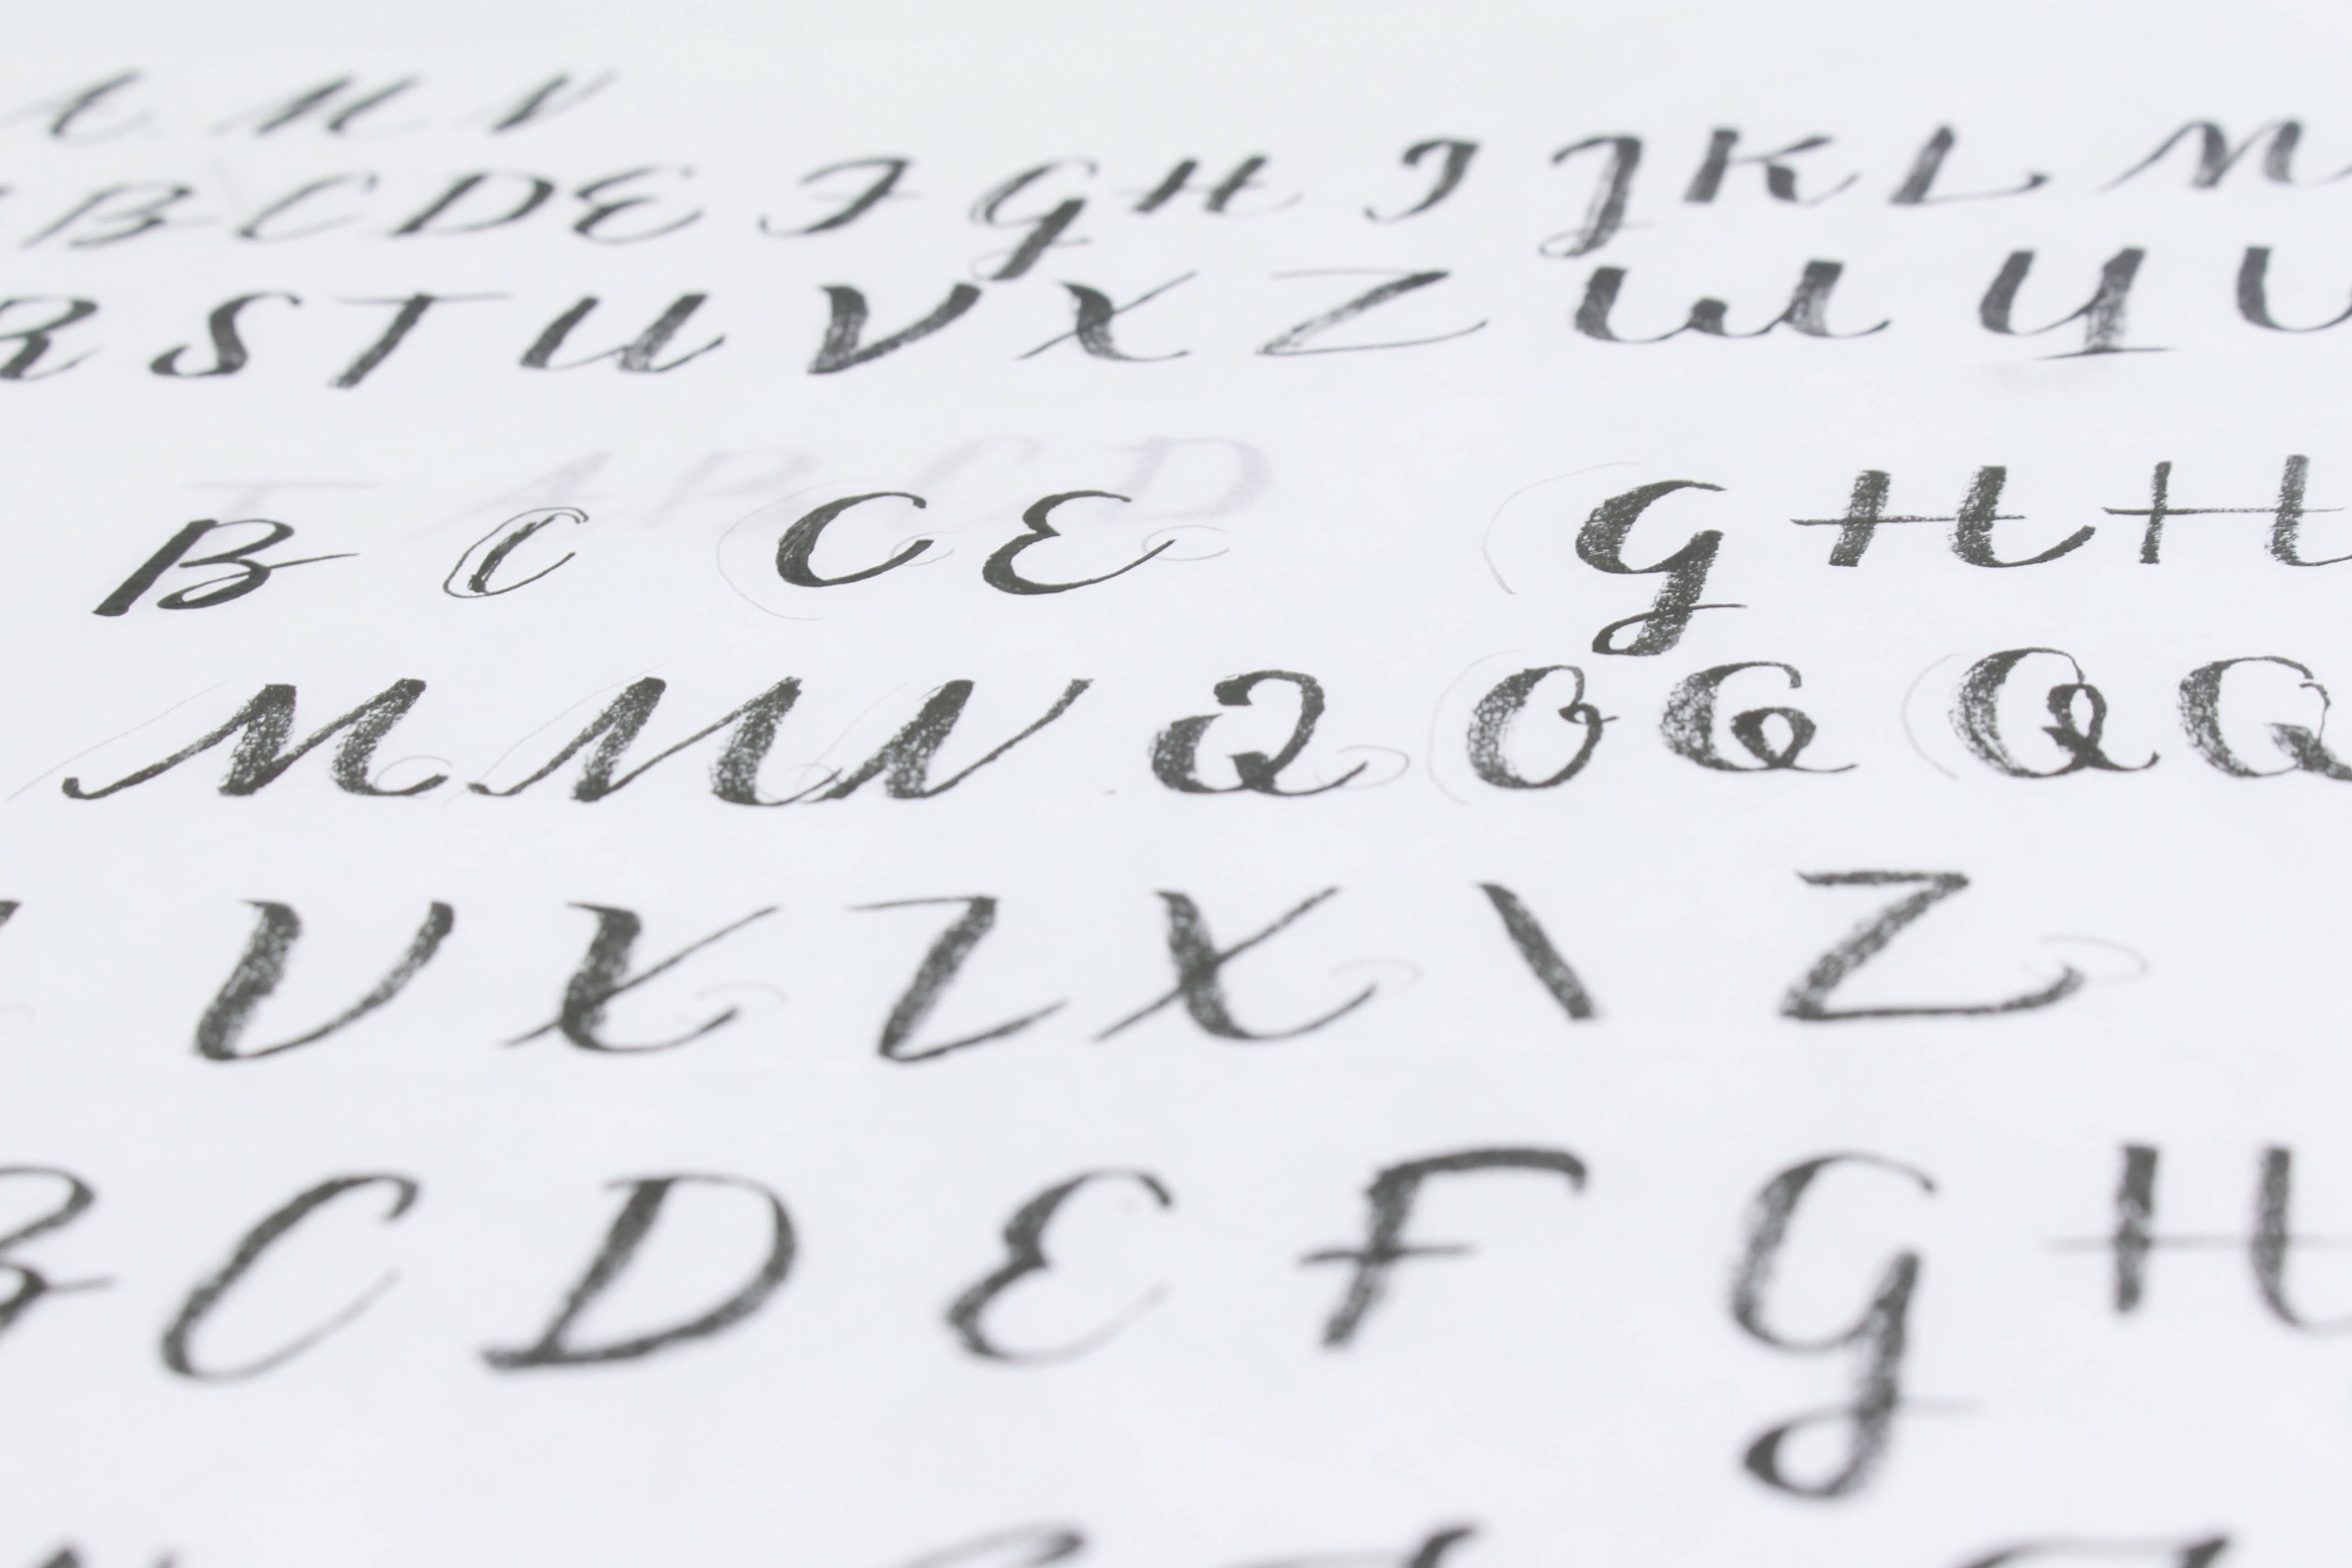 M N
B C D E F G H I J K L M
R S T U V X Z W Y U
A B C D
B C C E G H H
M M N Q O Q Q Q
V X Z X \ Z
B C D E F G H